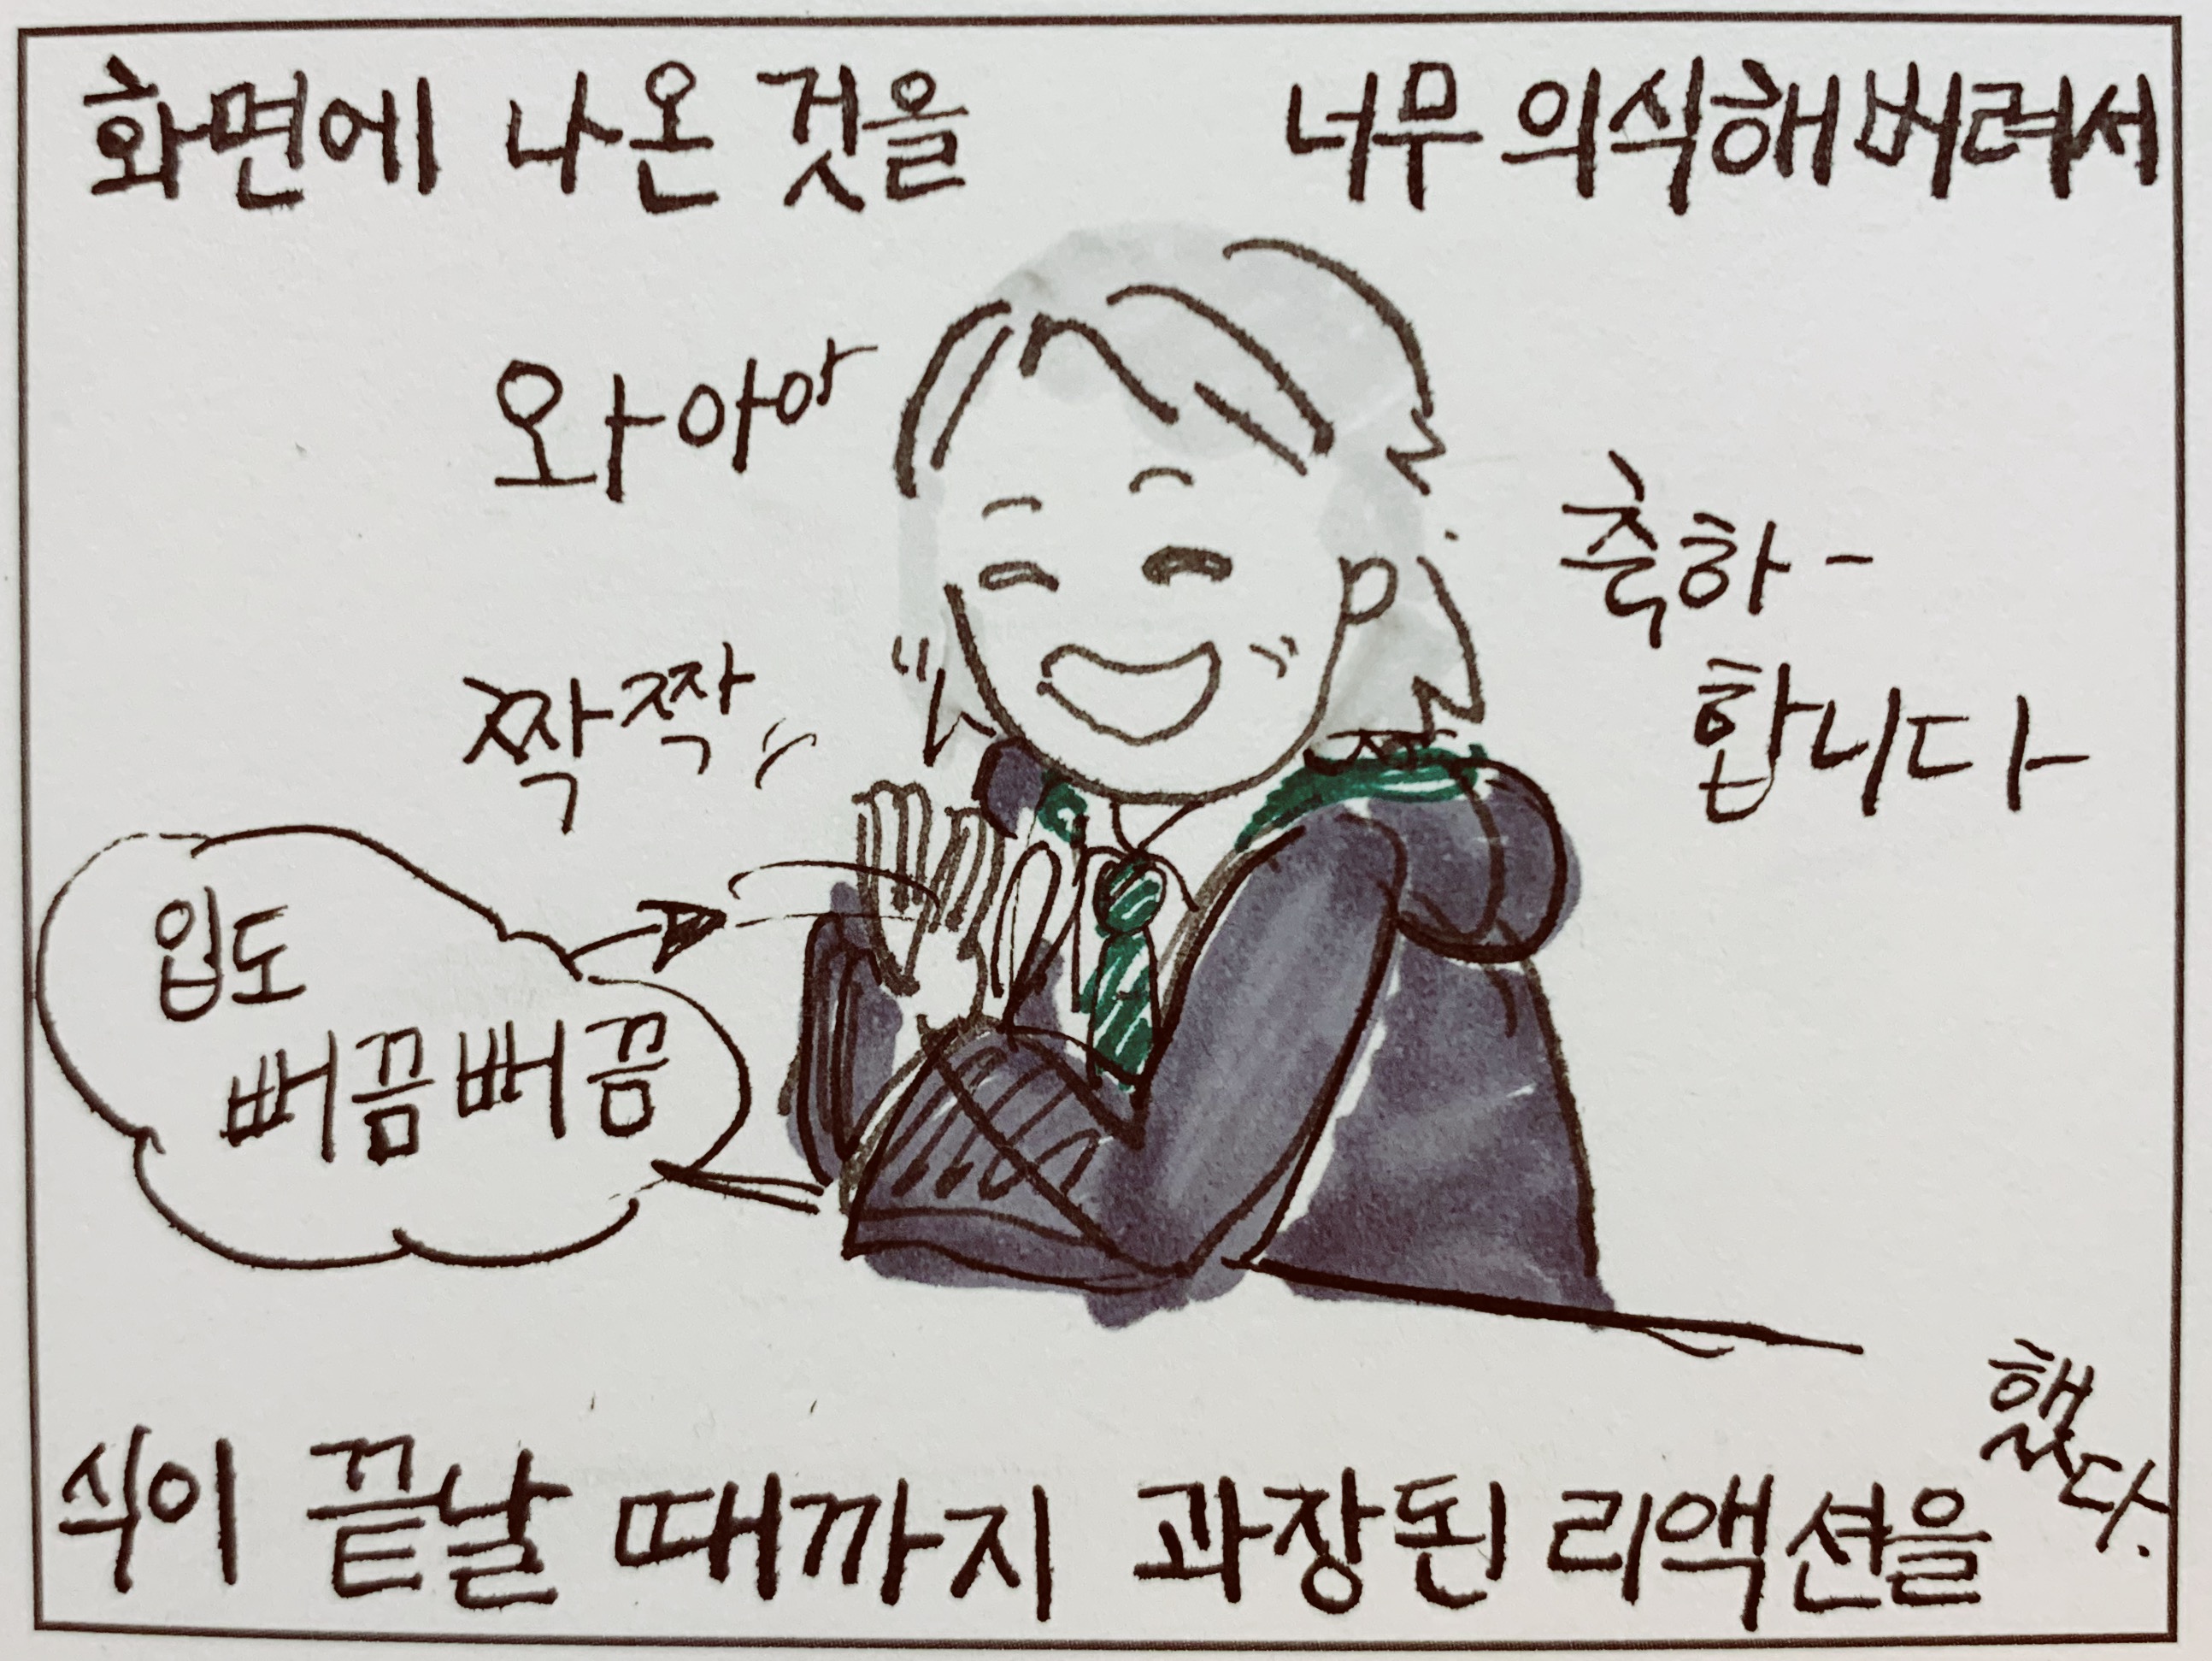 화면에 나온 것을 너무 의식해버려서
와아아
축하-
합니다
짝짝
입도
뻐끔뻐끔
식이 끝날 때까지 과장된 리액션을
했다.